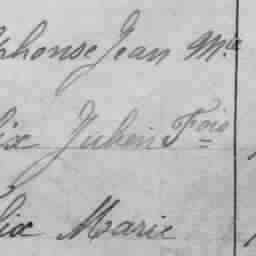 phonse Jean Mie
lix Julien Fois
lix Marie